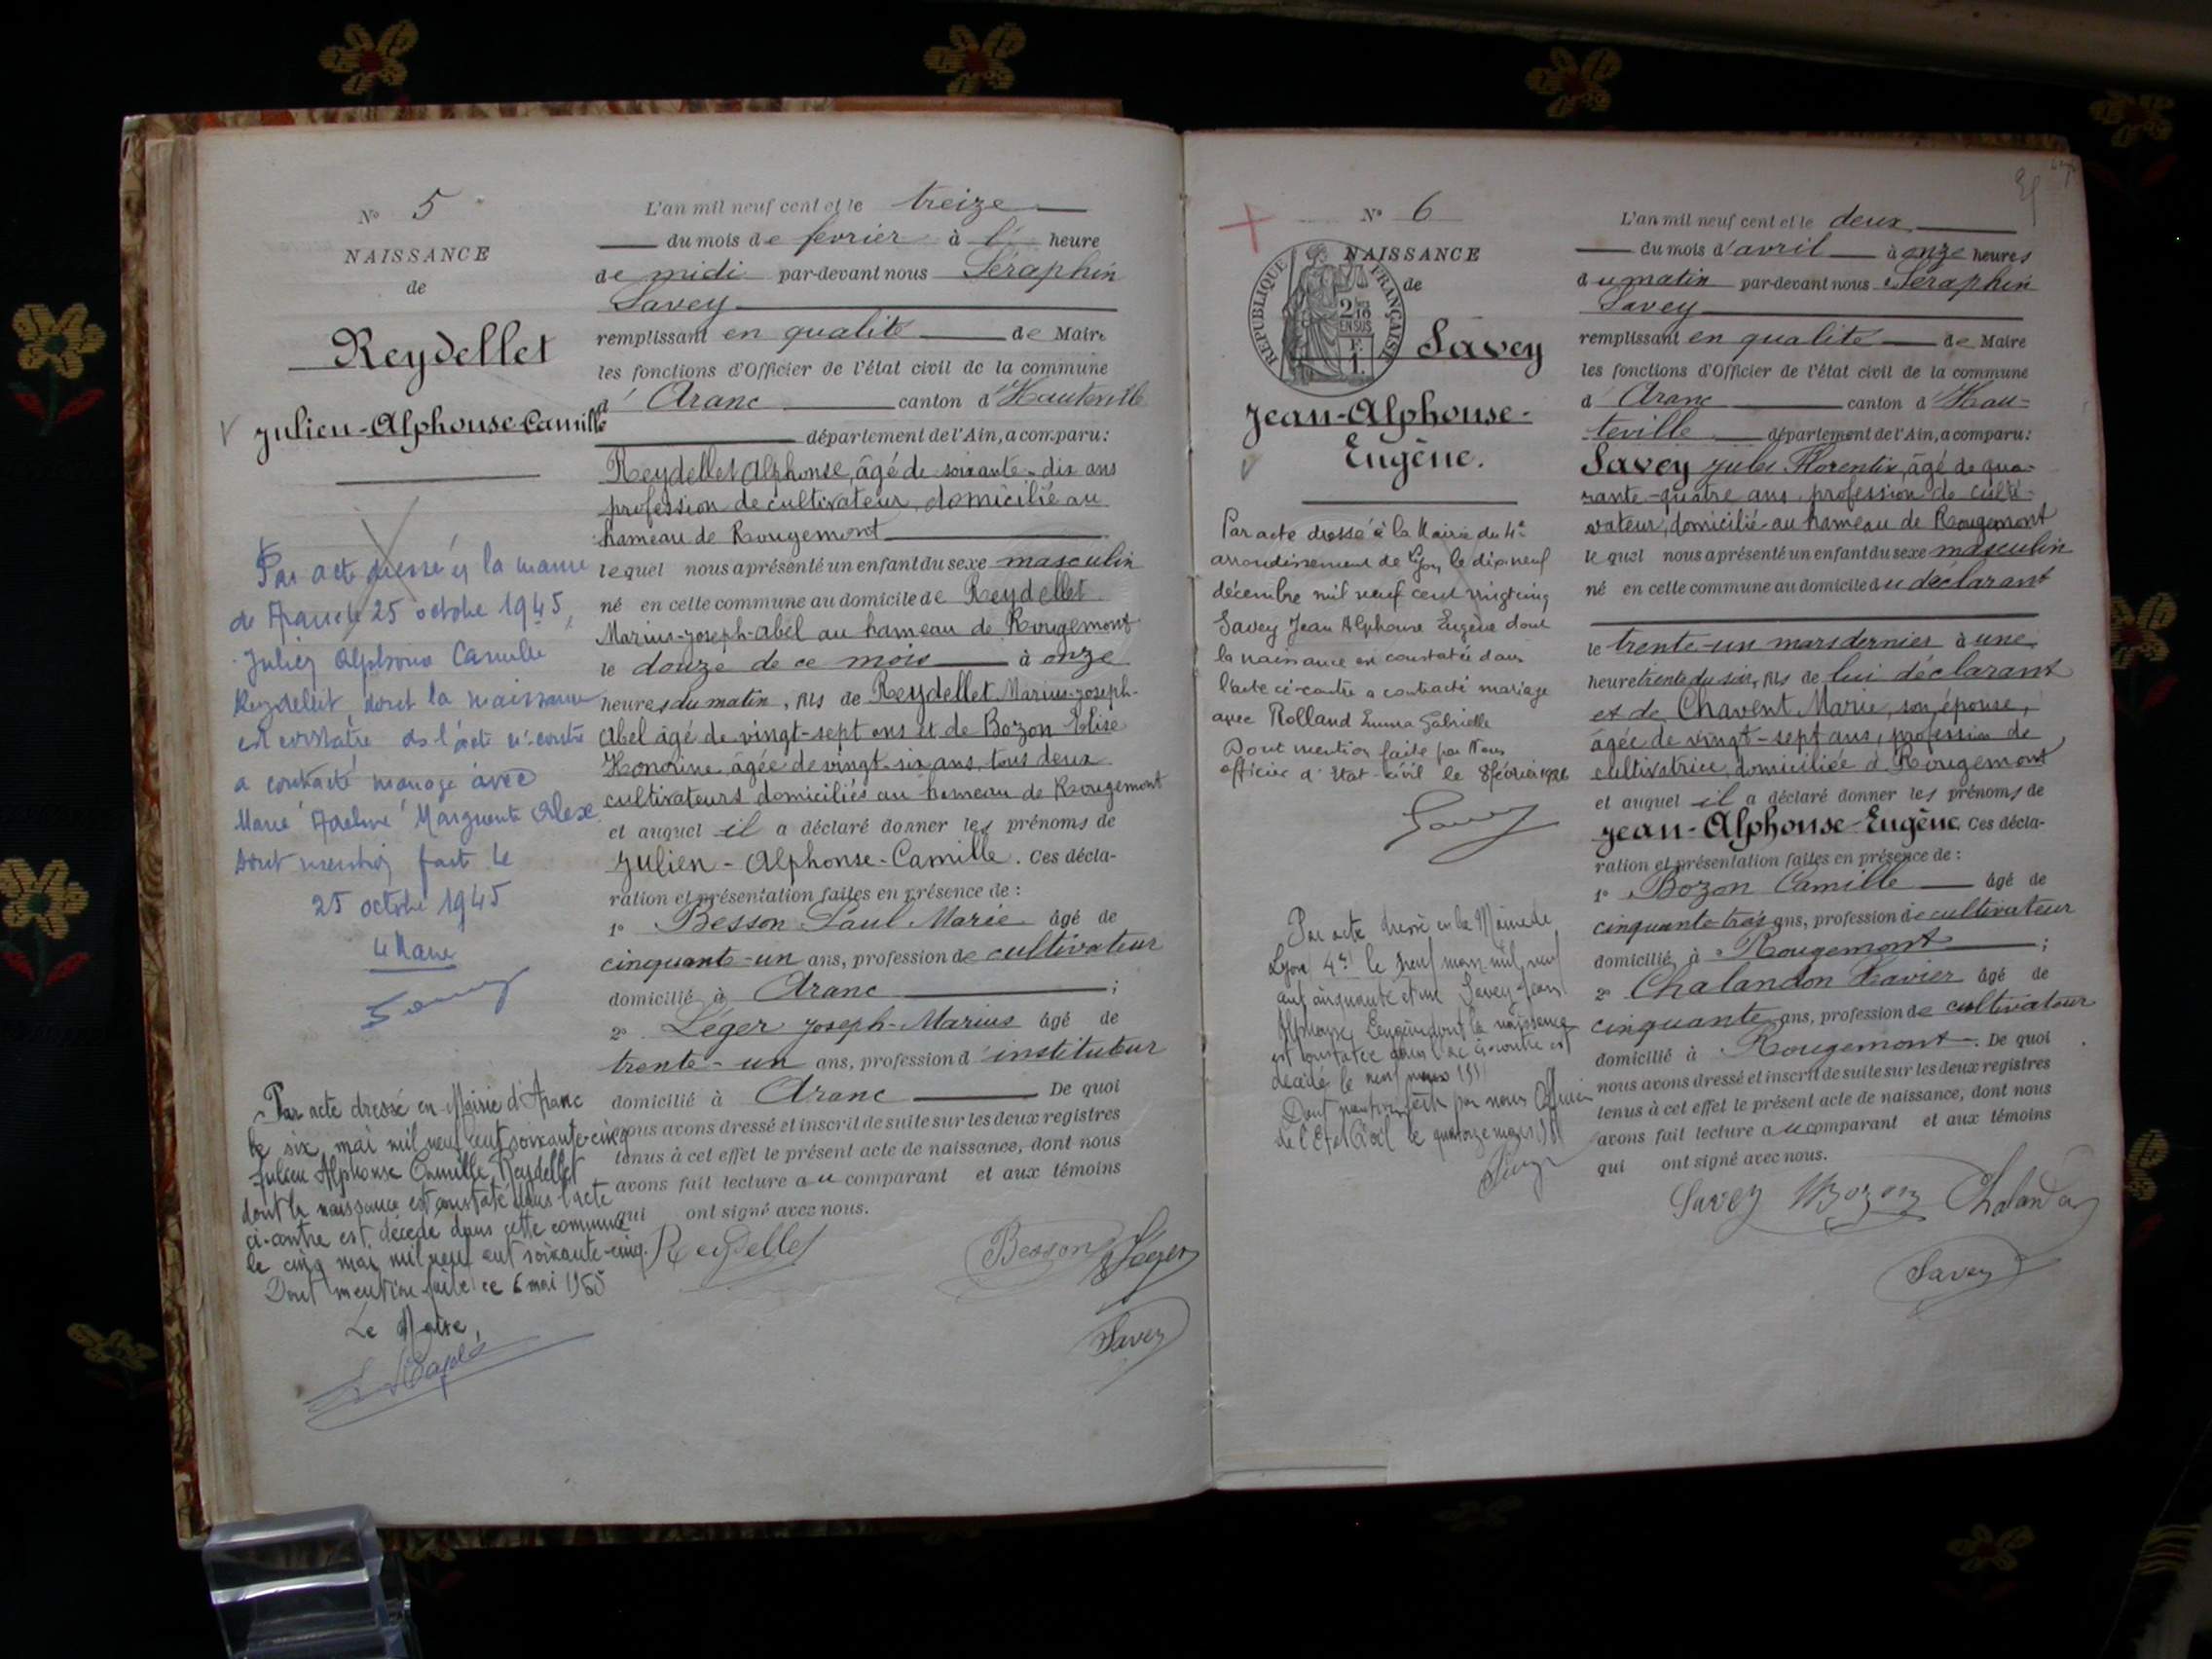 N° 5
NAISSANCE
de
Reydellet
Julien-Alphonse-Camille
Par acte dressé en la mairie
de Aranc le 25 octobre 1945,
Julien Alphonse Camille
Reydellet dont la naissance
est constatée ds l'acte ci-contre
a contracté mariage avec
Marie Adeline Marguerite Alex
Dont mention faite le
25 octobre 1945
Le Maire
Savey
Par acte dressé en Mairie d'Aranc
le six mai mil neuf cent soixante-cinq
Julien Alphonse Camille Reydellet
dont la naissance est constaté dans l'acte
ci-contre est décédé dans cette commune
le cinq mai mil neuf cent soixante-cinq.
Dont mention faite ce 6 mai 1965
Le Maire,
L'an mil neuf cent et le treize
du mois de février à l' heure
de midi par-devant nous Séraphin
Savey
remplissant en qualité de Maire
les fonctions d'Officier de l'état civil de la commune
d' Aranc canton d'Hauteville
département de l'Ain, a comparu:
Reydellet Alphonse, âgé de soixante-dix ans
profession de cultivateur, domicilié au
hameau de Rougemont
lequel nous a présenté un enfant du sexe masculin
né en cette commune au domicile de Reydellet
Marius-Joseph-Abel au hameau de Rougemont
le douze de ce mois à onze
heures du matin, fils de Reydellet Marius-Joseph-
Abel âgé de vingt-sept ans et de Bozon Elise
Honorine, âgée de vingt-six ans, tous deux
cultivateurs domiciliés au hameau de Rougemont
et auquel il a déclaré donner les prénoms de
Julien-Alphonse-Camille. Ces décla-
ration et présentation faites en présence de :
1° Besson Paul Marie âgé de
cinquante-un ans, profession de cultivateur
domicilié à Aranc ;
2° Léger Joseph-Marius âgé de
trente-un ans, profession d'instituteur
domicilié à Aranc De quoi
nous avons dressé et inscrit de suite sur les deux registres
tenus à cet effet le présent acte de naissance, dont nous
avons fait lecture au comparant et aux témoins
qui ont signé avec nous.
Reydellet Besson Léger
Savey
N° 6
NAISSANCE
de
REPUBLIQUE FRANÇAISE
2/10
EN SUS
F.
1.
Savey
Jean-Alphonse-
Eugène.
Par acte dressé à la Mairie du 4e
arrondissement de Lyon le dix neuf
décembre mil neuf cent vingt cinq
Savey Jean Alphonse Eugène dont
la naissance est constatée dans
l'acte ci-contre a contracté mariage
avec Rolland Emma Gabrielle
Dont mention faite par Nous
officier d'Etat-civil le 8 février 1926
Savey
Par acte dressé en la Mairie de
Lyon 4e le neuf mars mil neuf
cent cinquante et un Savey Jean
Alphonse Eugène dont la naissance
est constatée dans l'ac ci-contre est
décédé le neuf mars 1951
Dont mention faite par nous Officier
de l'Etat Civil le quatorze mars 1951
L'an mil neuf cent et le deux
du mois d'avril à onze heures
du matin par-devant nous Séraphin
Savey
remplissant en qualité de Maire
les fonctions d'Officier de l'état civil de la commune
d' Aranc canton d'Hau-
teville département de l'Ain, a comparu:
Savey Jules Florentin, âgé de qua-
rante-quatre ans, profession de culti-
vateur, domicilié au hameau de Rougemont
lequel nous a présenté un enfant du sexe masculin
né en cette commune au domicile du déclarant
le trente-un mars dernier à une
heure trente du soir, fils de lui déclarant
et de Chavent Marie, son épouse,
âgée de vingt-sept ans, profession de
cultivatrice, domiciliée à Rougemont
et auquel il a déclaré donner les prénoms de
Jean-Alphonse-Eugène. Ces décla-
ration et présentation faites en présence de :
1° Bozon Camille âgé de
cinquante-trois ans, profession de cultivateur
domicilié à Rougemont ;
2° Chalandon Xavier âgé de
cinquante ans, profession de cultivateur
domicilié à Rougemont. De quoi
nous avons dressé et inscrit de suite sur les deux registres
tenus à cet effet le présent acte de naissance, dont nous
avons fait lecture au comparant et aux témoins
qui ont signé avec nous.
Savey Bozon Chalandon
Savey